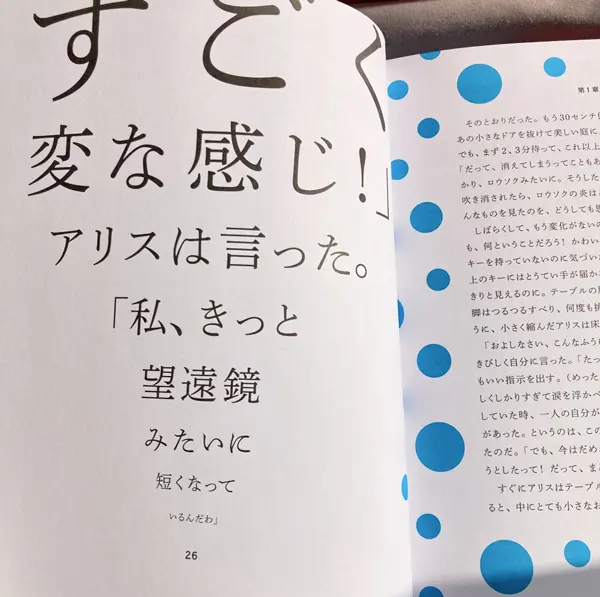 すごく
変な感じ!」
アリスは言った。
「私、きっと
望遠鏡
みたいに
短くなって
いるんだわ」
26
第1章
そのとおりだった。もう30センチ
あの小さなドアを抜けて美しい庭に
でも、まず2、3分待って、これ以上
「だって、消えてしまうってこともあ
かり、ロウソクみたいに。そうした
吹き消されたら、ロウソクの炎は
んなものを見たのを、どうしても思
しばらくして、もう変化がないの
も、何ということだろう!かわい
キーを持っていないのに気づいた
上のキーにはとうてい手が届か
きりと見えるのに。テーブルの
脚はつるつるすべり、何度も挑
うに、小さく縮んだアリスは床
「およしなさい、こんなふうに
きびしく自分に言った。「たっ
もいい指示を出す。(めった
しくしかりすぎて涙を浮かべ
していた時、一人の自分が
があった。というのは、この
たのだ。「でも、今はだめ
うとしたって!だって、ま
すぐにアリスはテーブル
ると、中にとても小さなお